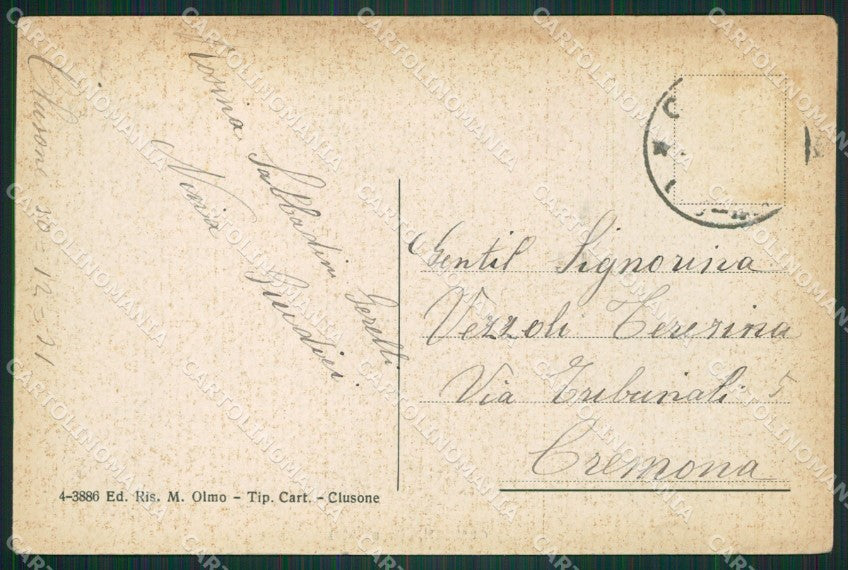 Clusone 30-12-21
Norina Sabbadini Gerelli
Ninia Giudici
Gentil Signorina
Vezzoli Teresina
Via Tribunali 5
Cremona
4-3886 Ed. Ris. M. Olmo - Tip. Cart. - Clusone
CARTOLINOMANIA